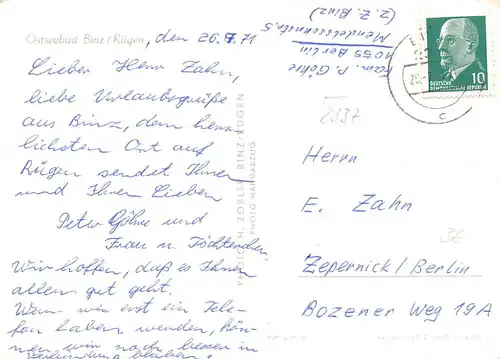 Ostseebad Binz/Rügen, den 26.7.71
Lieber Herr Zahn,
liebe Urlaubsgrüße
aus Binz, dem herr-
lichsten Ort auf
Rügen sendet Ihnen
und Ihren Lieben
Peter Göhre und
Frau u. Töchterchen
Wir hoffen, daß es Ihnen
allen gut geht.
Wenn wir erst ein Tele-
fon haben werden, kön-
nen wir noch besser in
Verbindung bleiben.
Fam. P. Göhre
1055 Berlin
Mendelssohnstr. 5
(z. Z. Binz)
BINZ/RÜGEN
PHOTO-HANDABZUG
10
DEUTSCHE
DEMOKRATISCHE REPUBLIK
c
2337
Herrn
E. Zahn
36
Zepernick/Berlin
Bozener Weg 19A